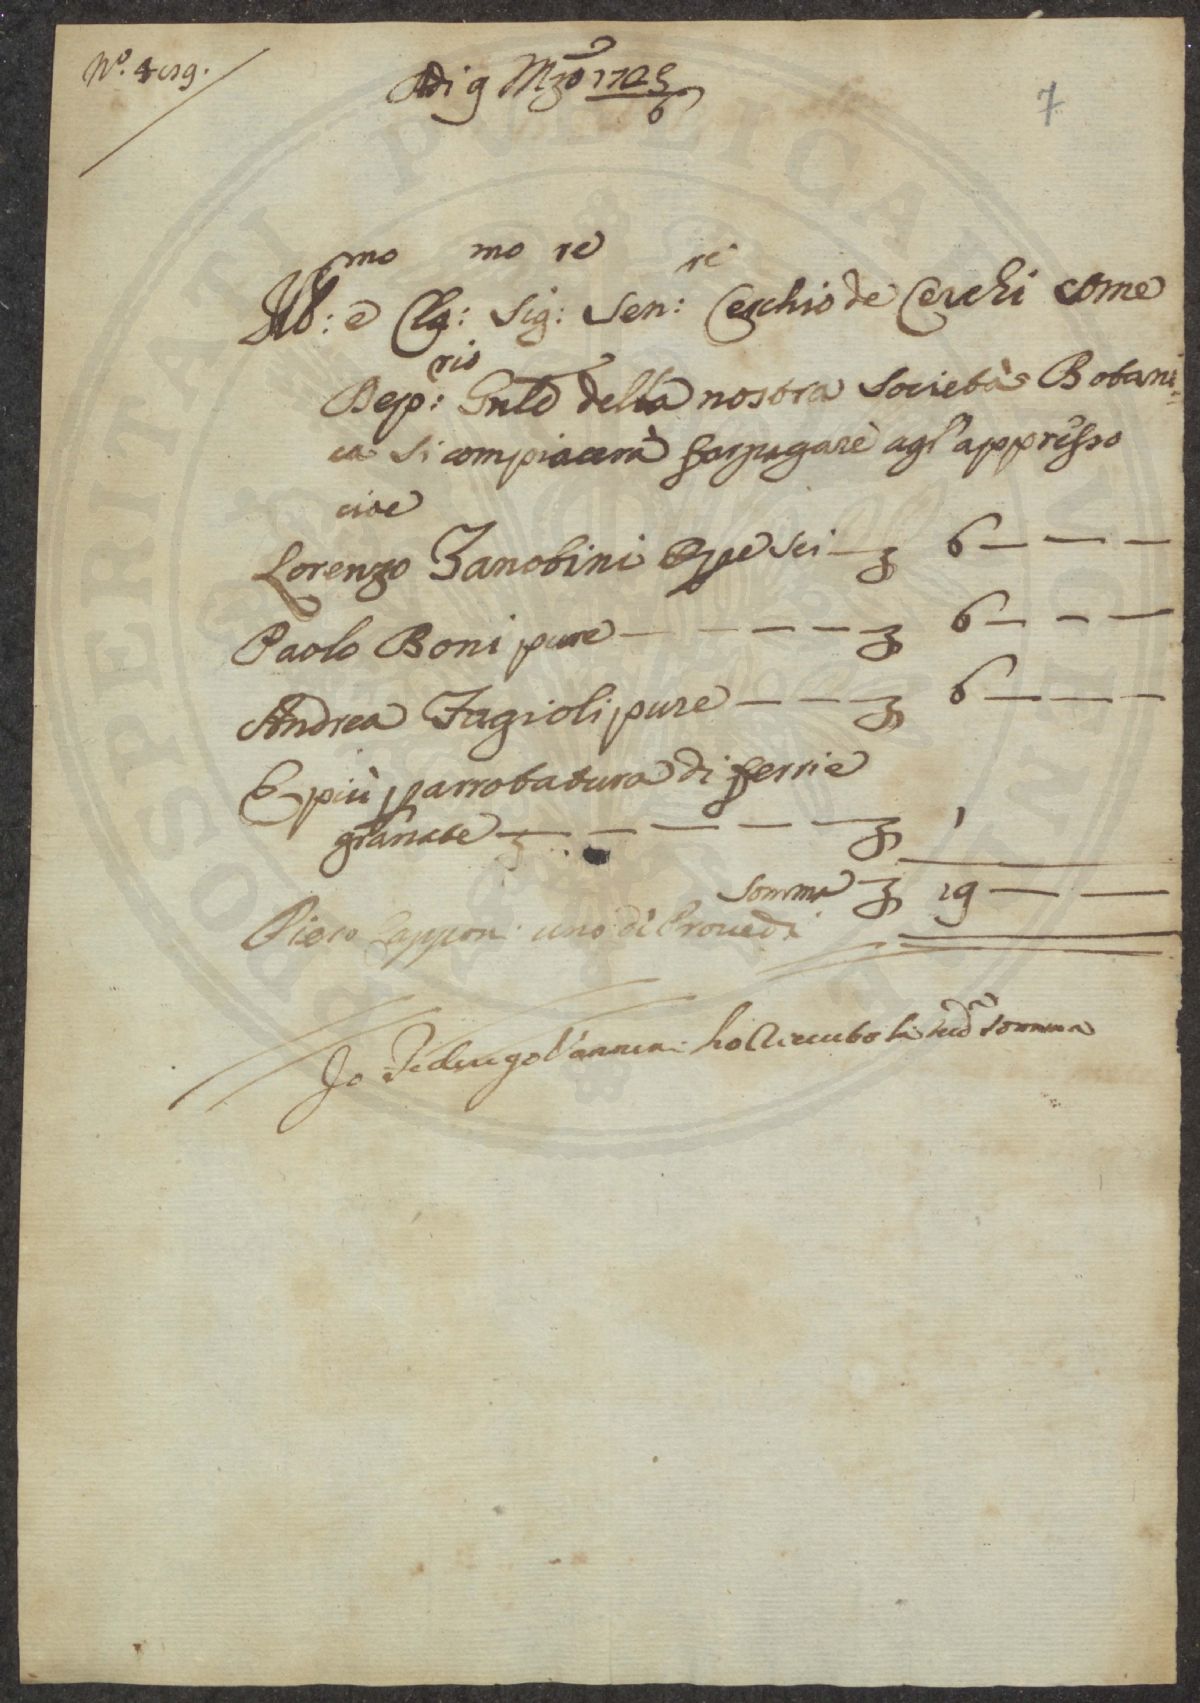 N.º 4 c19.
Adi 9 Mzo 1725/6
7
Ill:mo e Cla:mo Sig:re Sen:re Cerchio de Cerchi come
Dep:rio Gnle della nostra Società Botani=
ca si compiacerà far pagare agl'appresso
cioe
Lorenzo Zanobini Lire sei — 6 — — —
Paolo Boni pure — — — — 6 — — —
Andrea Fagioli pure — — — 6 — — —
E più p arrotatura di ferri e
granate — — — — — 1
Somma 19 — —
Piero Capponi uno di Proved.i
Io Federigo Vannini ho ricevuto la sud.a somma
PROSPERITATI PUBLICAE